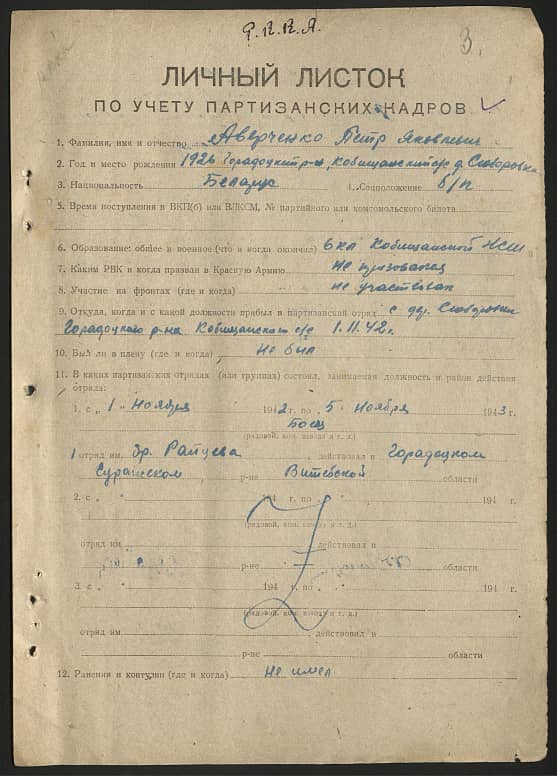 Р.К.К.А.
3.
ЛИЧНЫЙ ЛИСТОК
ПО УЧЕТУ ПАРТИЗАНСКИХ КАДРОВ
1. Фамилия, имя и отчество Аверченко Петр Яковлевич
2. Год и место рождения 1926 Горадоцкий р-н, Кобищанский с/с д.
3. Национальность Беларус 4. Соцположение б/п
5. Время поступления в ВКП(б) или ВЛКСМ, № партийного или комсомольского билета
6. Образование: общее и военное (что и когда окончил) 6 кл Кобищанской НСШ
7. Каким РВК и когда призван в Красную Армию не призовался
8. Участие на фронтах (где и когда) не участвовал
9. Откуда, когда и с какой должности прибыл в партизанский отряд с дер.
Горадоцкого р-на Кобищанского с/с 1.11.42 г.
10. Был ли в плену (где и когда) Не был
11. В каких партизанских отрядах (или группах) состоял, занимаемая должность и район действия
отряда:
1. с „ 1 " Ноября 1942 г. по 5 Ноября 1943 г.
Боец
(рядовой, ком. взвода и т. д.)
1 отряд им. бр. Райцева, действовал в Горадоцком
Суражском р-не Витебской области
2. с „ " 194 г. по „ " 194 г.
(рядовой, ком. взвода и т. д.)
отряд им , действовал в
р-не области
3. с „ " 194 г. по „ " 194 г.
(рядовой, ком. взвода и т. д.)
отряд им , действовал в
р-не области
12. Ранения и контузии (где и когда) не имел